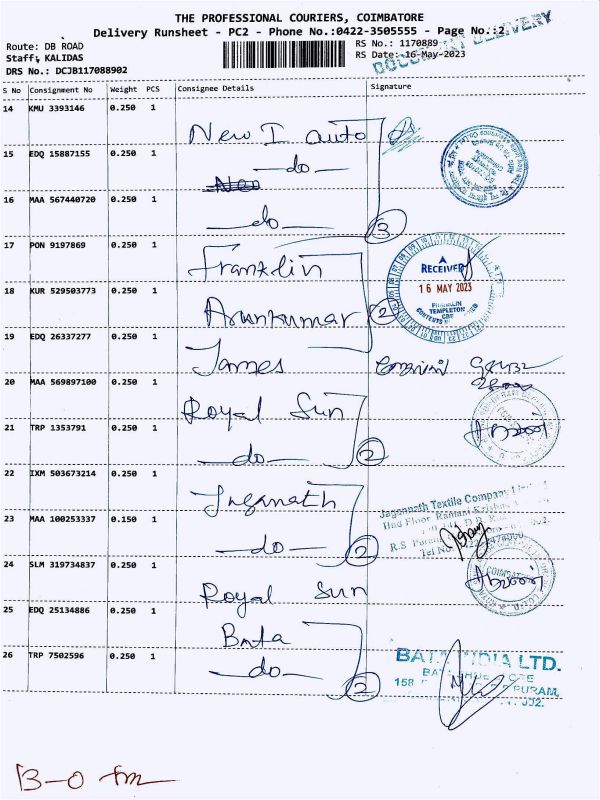 THE PROFESSIONAL COURIERS, COIMBATORE
Delivery Runsheet - PC2 - Phone No.:0422-3505555 - Page No.:2
DOCUMENT DELIVERY
Route: DB ROAD
RS No.: 1170889
Staff: KALIDAS
RS Date: 16-May-2023
DRS No.: DCJB117088902
S No Consignment No Weight PCS Consignee Details Signature
14 KMU 3393146 0.250 1 New I auto
15 EDQ 15887155 0.250 1 -do-
16 MAA 567440720 0.250 1 -do- 3
17 PON 9197869 0.250 1 Franklin
RECEIVED
16 MAY 2023
FRANKLIN
TEMPLETON
18 KUR 529503773 0.250 1 Arunkumar 2
19 EDQ 26337277 0.250 1 James
20 MAA 569897100 0.250 1 Royal Sun
21 TRP 1353791 0.250 1 -do- 2
22 IXM 503673214 0.250 1 Jaganath
Jagannath Textile Company
23 MAA 100253337 0.150 1 -do- 2
24 SLM 319734837 0.250 1 Royal Sun
25 EDQ 25134886 0.250 1 Bata
26 TRP 7502596 0.250 1 -do- 2
BATA INDIA LTD.